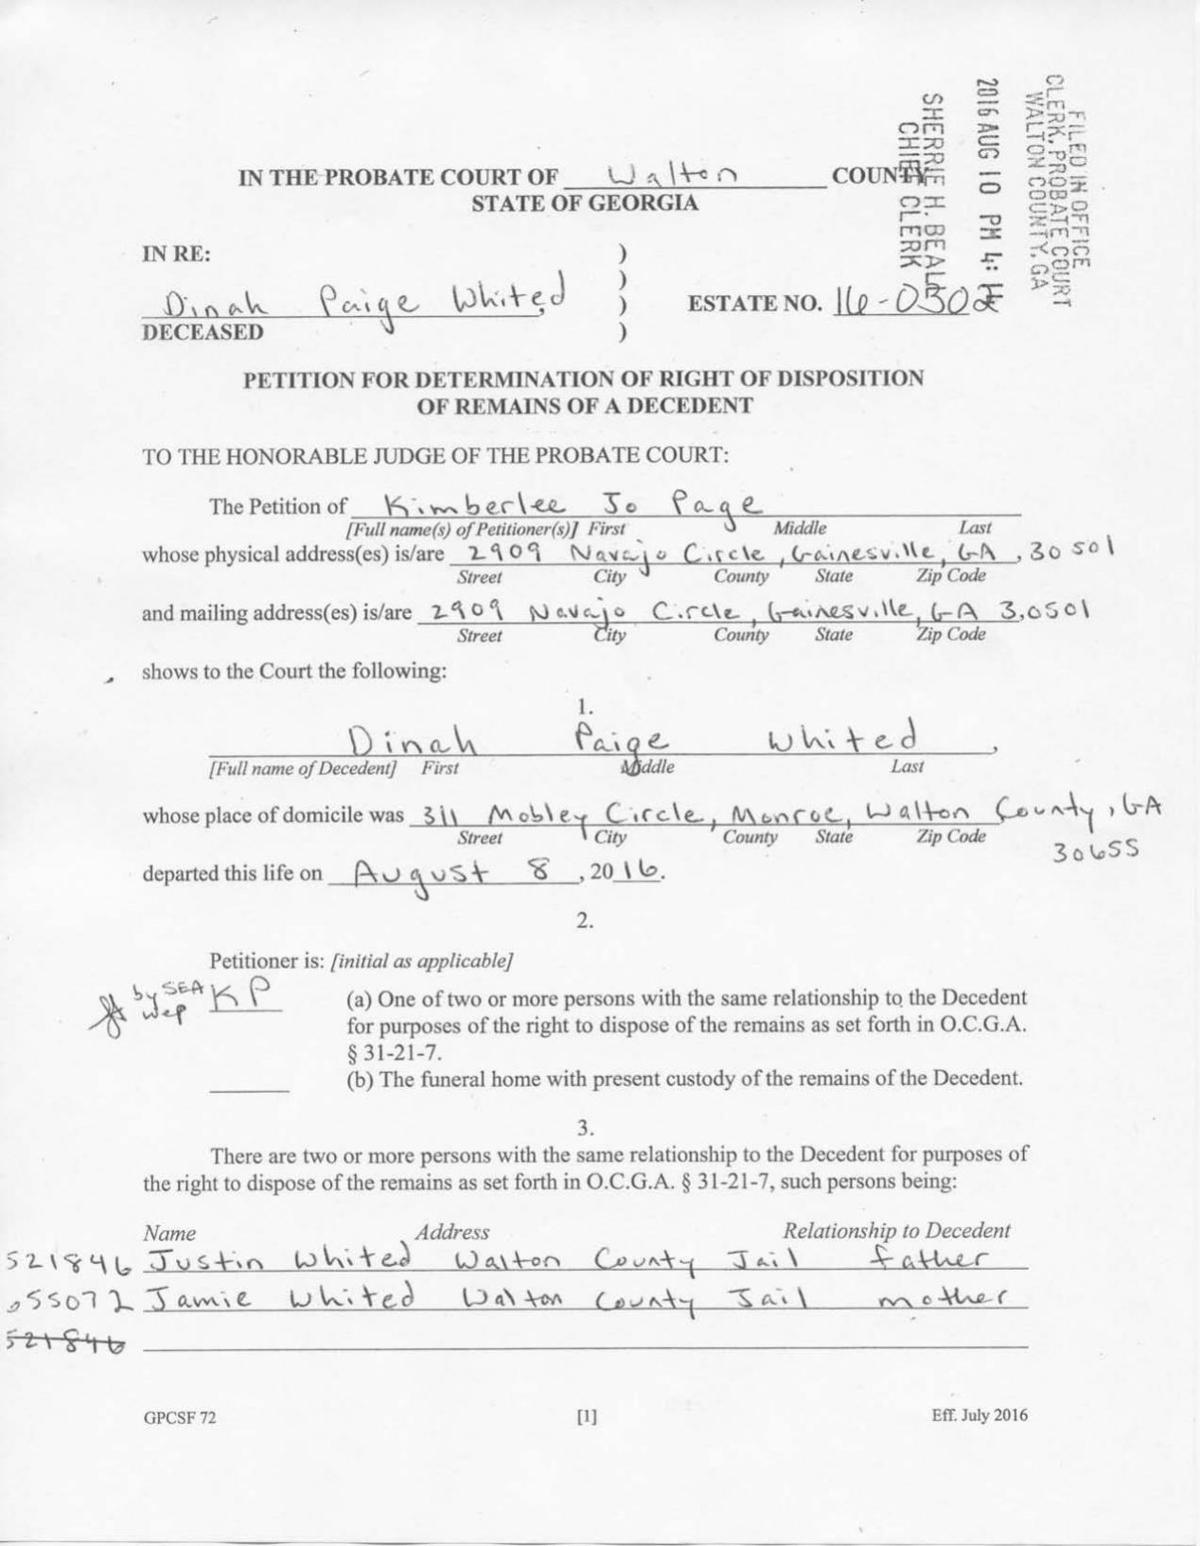 FILED IN OFFICE
CLERK, PROBATE COURT
WALTON COUNTY, GA
2016 AUG 10 PM 4:
SHERRIE H. BEALE
CHIEF CLERK
IN THE PROBATE COURT OF Walton COUNTY
STATE OF GEORGIA
IN RE: )
)
Dinah Paige Whited, ) ESTATE NO. 16-0302
DECEASED )
PETITION FOR DETERMINATION OF RIGHT OF DISPOSITION
OF REMAINS OF A DECEDENT
TO THE HONORABLE JUDGE OF THE PROBATE COURT:
The Petition of Kimberlee Jo Page
[Full name(s) of Petitioner(s)] First Middle Last
whose physical address(es) is/are 2909 Navajo Circle, Gainesville, GA, 30501
Street City County State Zip Code
and mailing address(es) is/are 2909 Navajo Circle, Gainesville, GA 30501
Street City County State Zip Code
shows to the Court the following:
1.
Dinah Paige Whited,
[Full name of Decedent] First Middle Last
whose place of domicile was 311 Mobley Circle, Monroe, Walton County, GA
Street City County State Zip Code
30655
departed this life on August 8, 2016.
2.
Petitioner is: [initial as applicable]
by SEA KP (a) One of two or more persons with the same relationship to the Decedent
for purposes of the right to dispose of the remains as set forth in O.C.G.A.
§ 31-21-7.
(b) The funeral home with present custody of the remains of the Decedent.
3.
There are two or more persons with the same relationship to the Decedent for purposes of
the right to dispose of the remains as set forth in O.C.G.A. § 31-21-7, such persons being:
Name Address Relationship to Decedent
521846 Justin Whited Walton County Jail father
055072 Jamie Whited Walton County Jail mother
521846
GPCSF 72 [1] Eff. July 2016